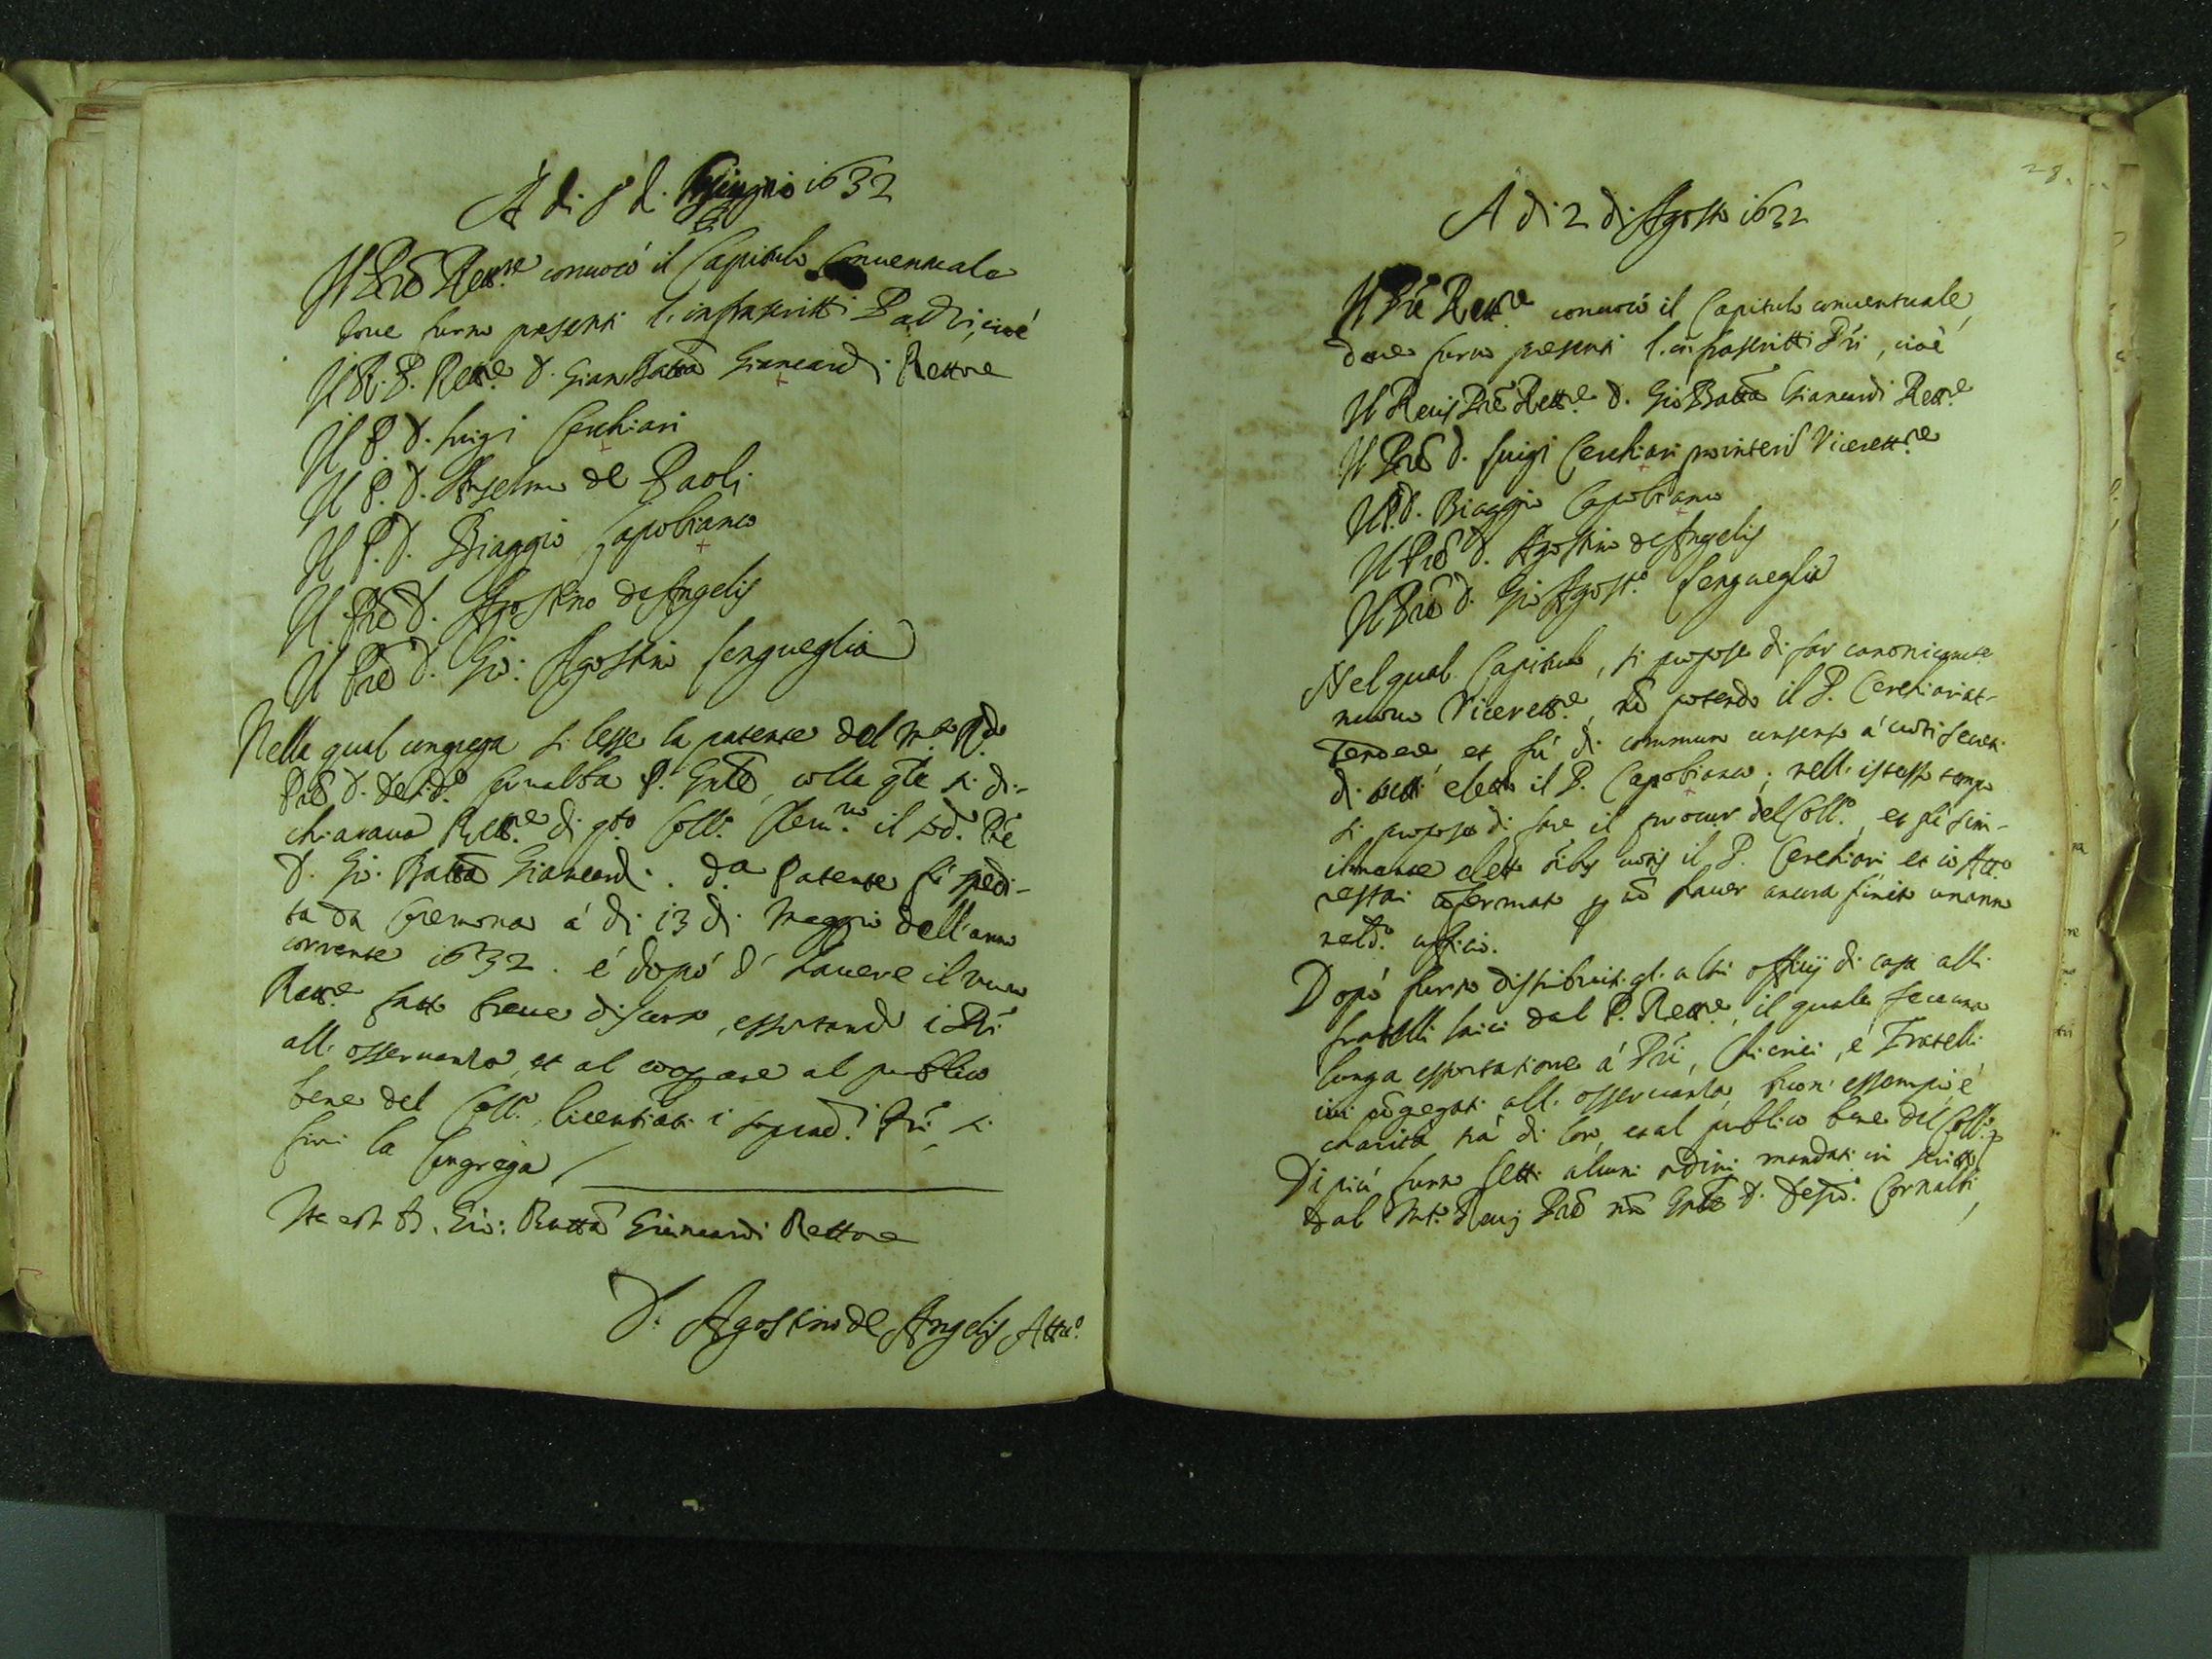 A di 8 d. Giugno 1632
Il Prē Rett.re convocò il Capitulo Conventuale
dove furno presenti l'infrascritti Padri, cioè
Il R. P. Rett.re D. Gian Batta Giancardi Rettore
Il P. D. Luigi Cerchiari
Il P. D. Anselmo de Paoli
Il P. D. Biaggio Capobianco
Il Prē D. Agostino de Angelis
Il Prē D. Gio: Agostino Lengueglia
Nella qual congrega si lesse la patente del M.to R.do
Prē D. Desid.o Cornalba P. Gnlē, colla qle si di-
chiarava Rett.re di qto Coll.o Clem.no il sod.o Prē
D. Gio. Batta Giancardi. d.a Patente fù spedi-
ta da Cremona à di 13 di Maggio dell'anno
corrente 1632. è dopó d' havere il nuovo
Rett.re fatto breve discorso, essortando i Pri
all' osservanza, et al cooperare al publico
bene del Coll.o, licentiati i soprad.i Pri, si
finì la Congrega
Ita est D. Gio: Batta Giancardi Rettore
D. Agostino de Angelis Att.o
28.
A di 2 di Agosto 1632
Il Prē Rett.re convocò il Capitulo conventuale,
dove furno presenti l'infrascritti Pri, cioè
Il Rev. Prē Rett.re D. Gio Batta Giancardi Rett.re
Il Prē D. Luigi Cerchiari Vicerett.re
Il P. D. Biaggio Capobianco
Il Prē D. Agostino de Angelis
Il Prē D. Gio Agost.o Lengueglia
Nel qual Capitulo, si propose di far canonicamte
nuovo Vicerett.re, nō potendo il P. Cerchiari at-
tendere, et fù di commun consenso à voti secreti
di tutti eletto il P. Capobianco; nell' istesso tempo
si propose di fare il procur. del Coll.o, et fù sim-
ilmente eletto oībus votis il P. Cerchiari et io Att.o
restai cōfermato p nō haver ancora finito un anno
nel d.o officio.
Dopó furno distribuiti gl' altri officij di casa alli
fratelli laici dal P. Rett.re, il quale fece una
longa essortatione à Pri, Chierici, è Fratelli
ivi cōgregati all' osservanza, buon essempio, è
charità trà di loro, et al publico bene del Coll.o
Di più furno letti alcuni ordini mandati in scritto
dal M.to Rev. Prē nrō Gnlē D. Desid.o Cornalba,